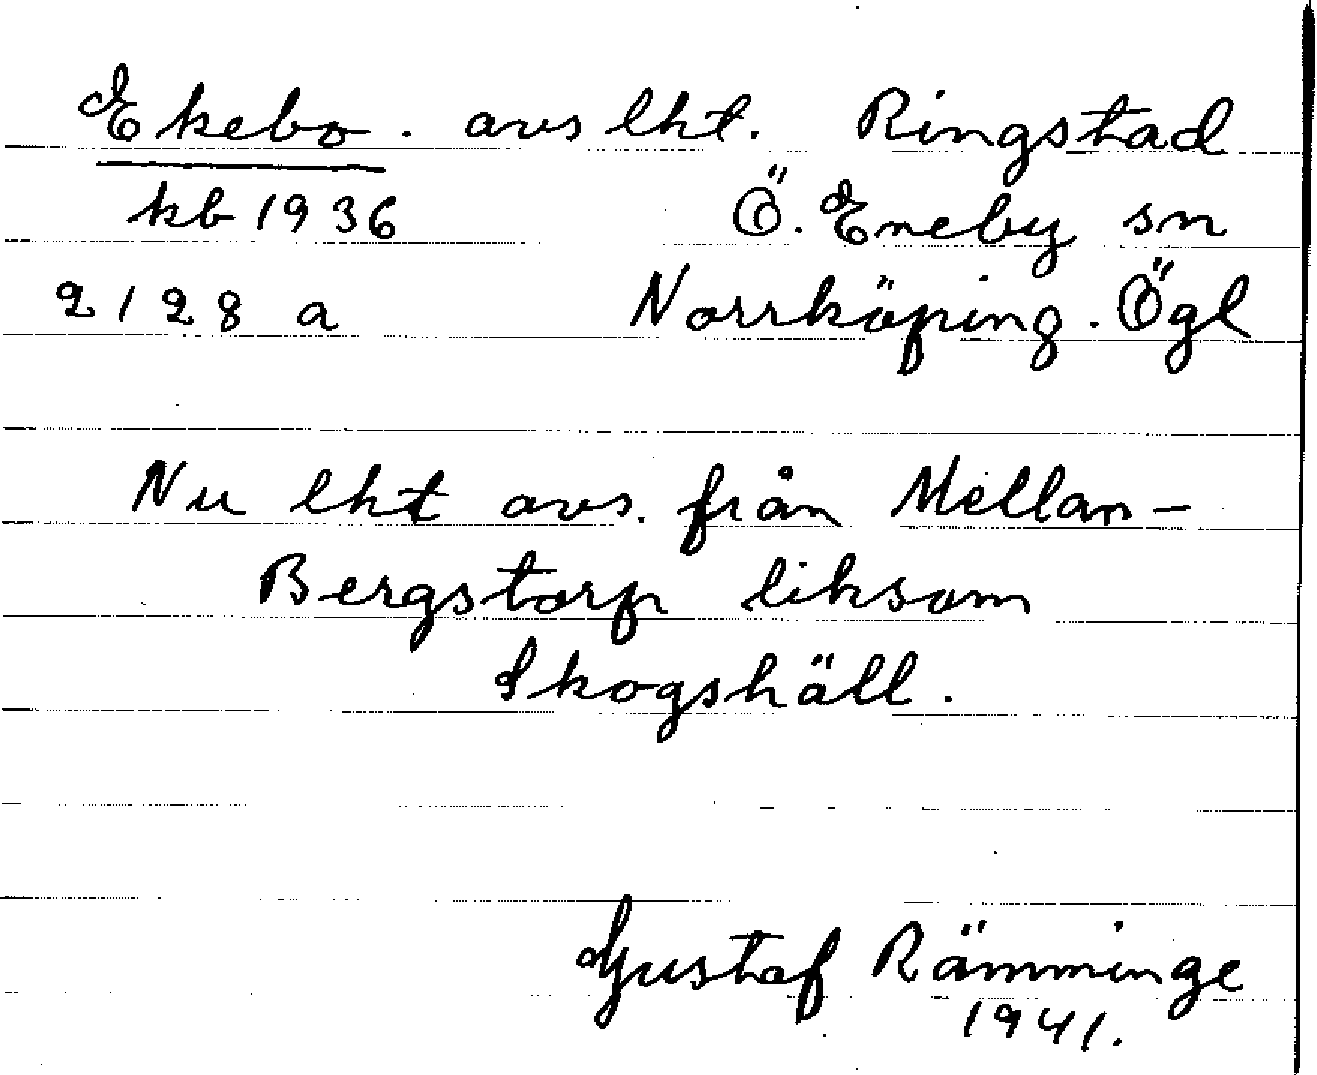 Ekebo. avs lht. Ringstad
kb 1936 Ö. Eneby sn
2128 a Norrköping. Ögl
Nu lht avs. från Mellan-
Bergstorp liksom
Skogshäll.
Gustaf Rämminge
1941.